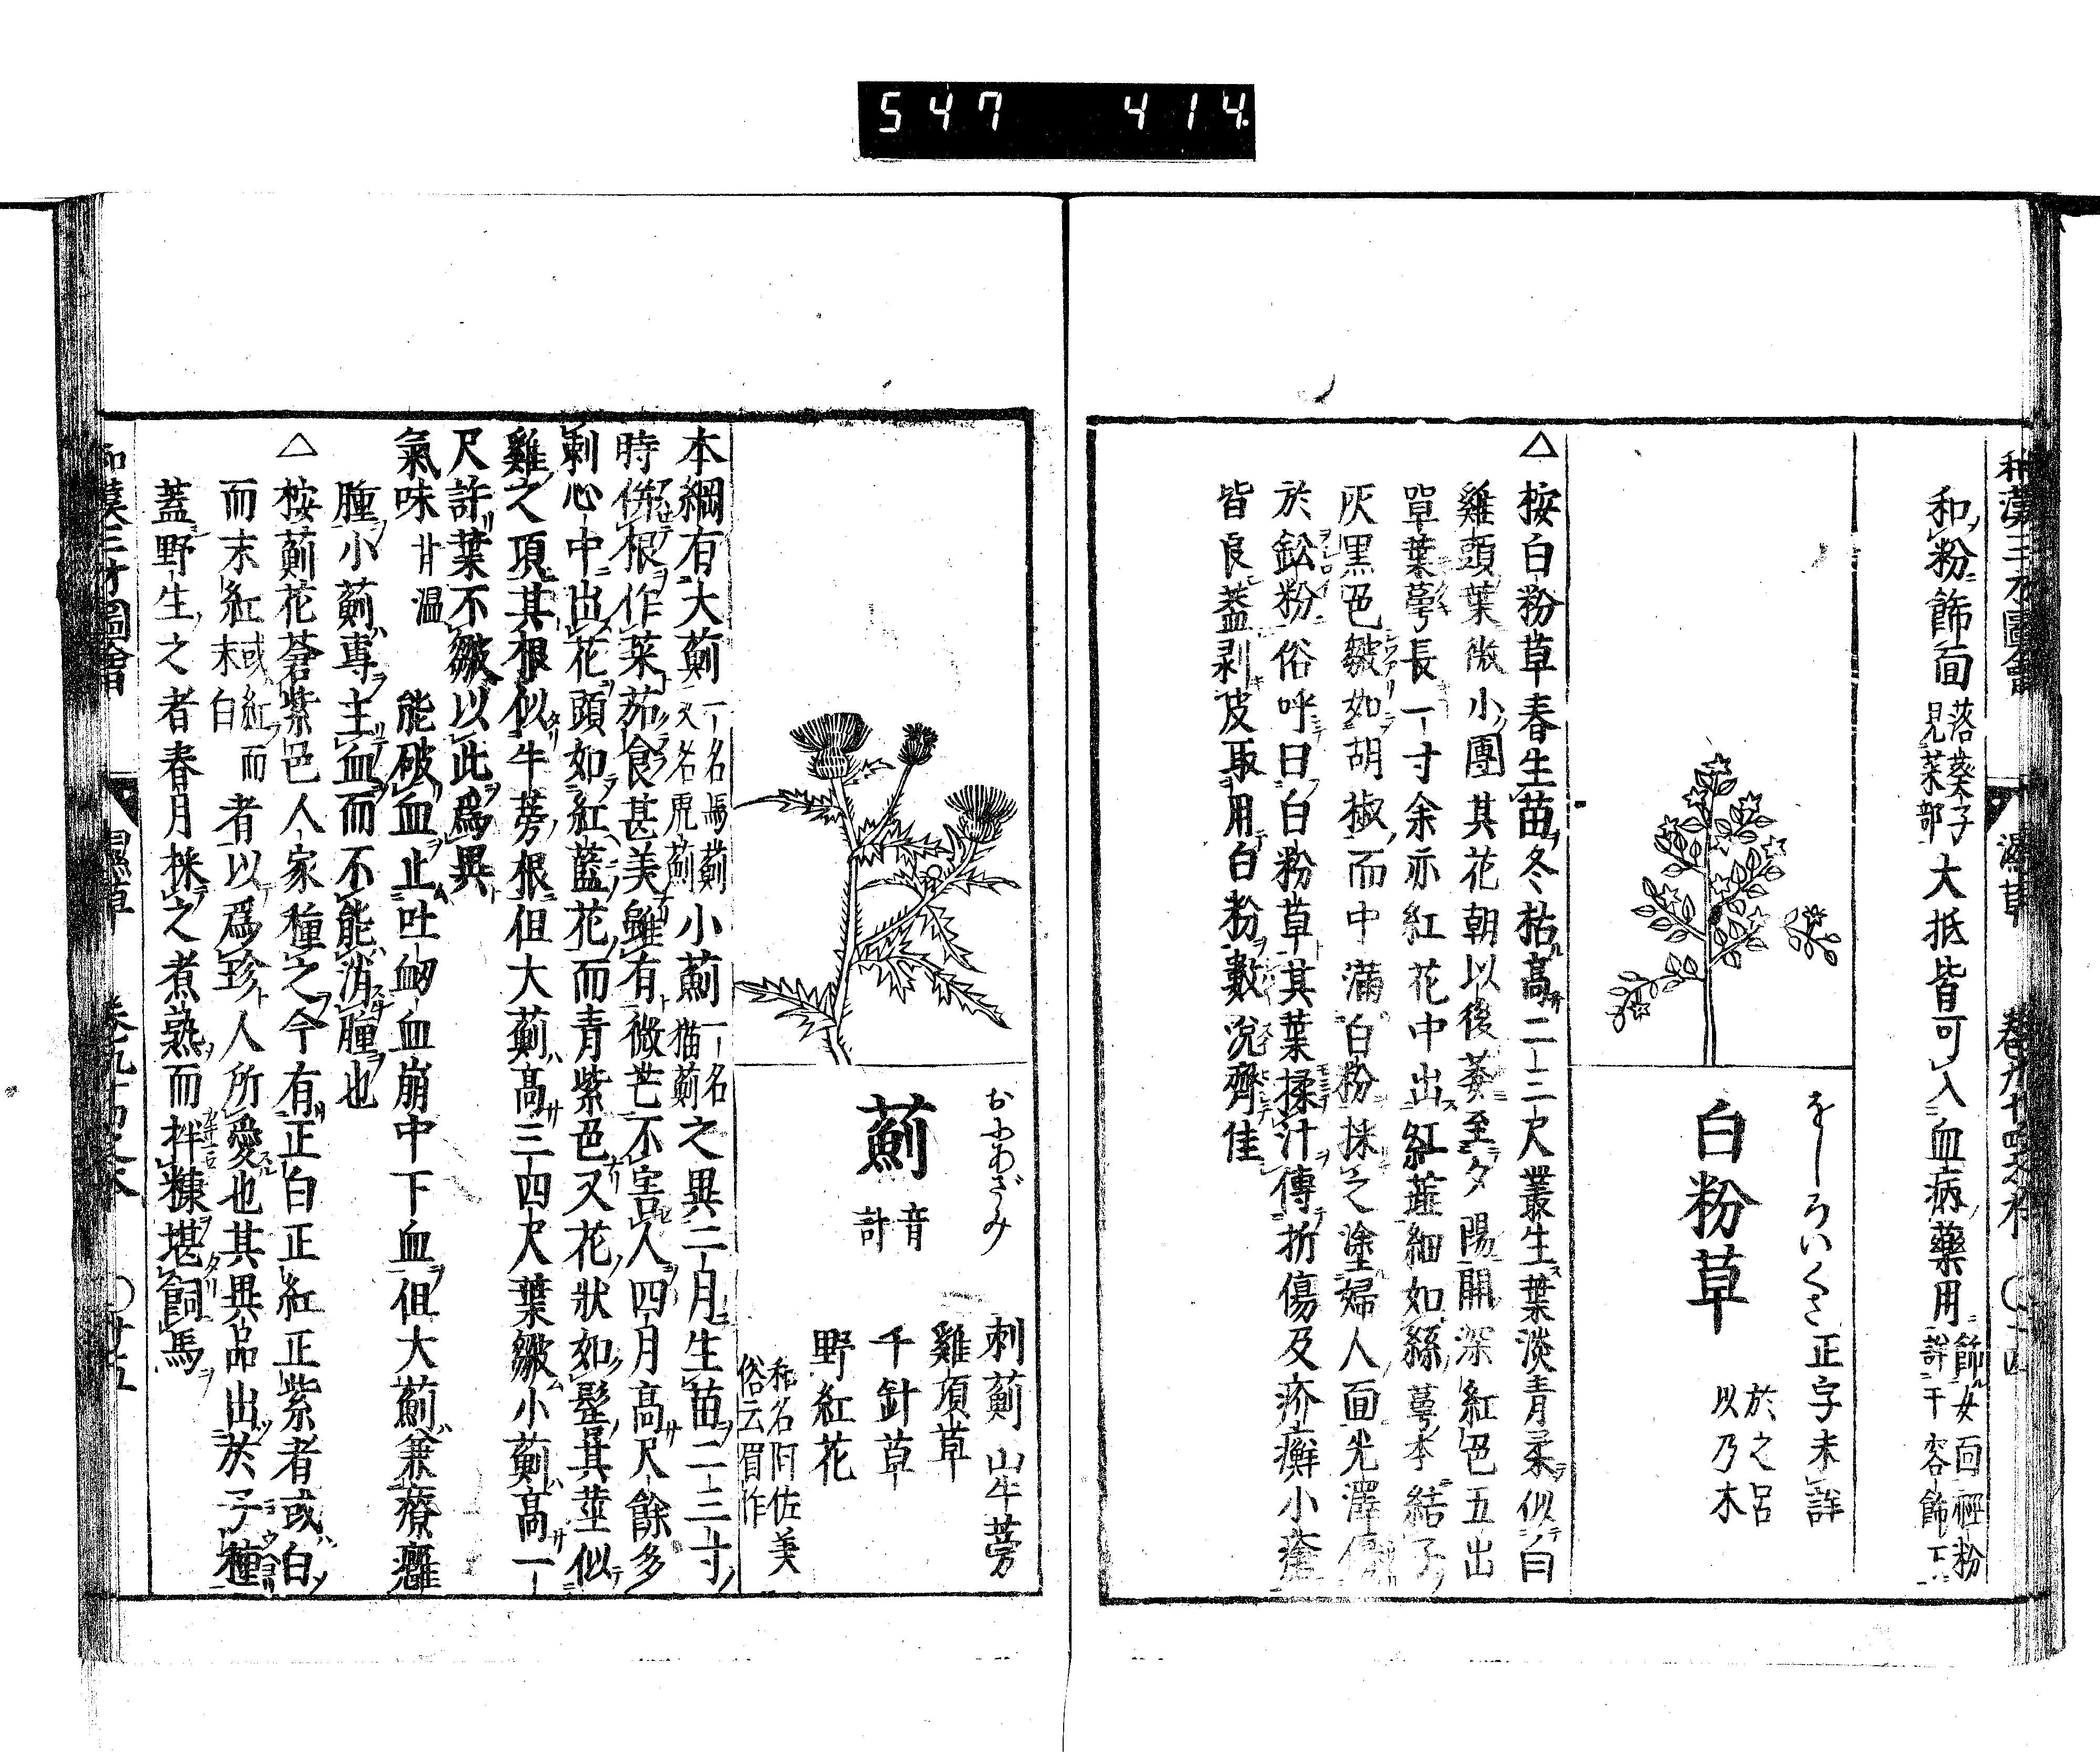 547 414
和漢三才圖會 濕草 卷九十四之本
和粉飾面 落葵子見菜部 大抵皆可入血病藥用
をしろいくさ 正字未詳
白粉草
於之呂
以乃木
△按白粉草春生苗冬枯高二三尺叢生葉淡青柔似白
雞頭葉微小團其花朝以後萎至夕陽開深紅色五出
單葉蕚長一寸余亦紅花中出紅蘂細如絲蕚本結子
灰黑色皺如胡椒而中滿白粉抹之塗婦人面光澤
於鉛粉俗呼曰白粉草其葉揉汁傳折傷及疥癬小瘡
皆良蓋剥皮取用白粉數
佳
おにあざみ
薊 音計
刺薊 山牛蒡
雞項草
千針草
野紅花
和名阿佐美
俗云眉作
本綱有大薊 一名馬薊又名虎薊 小薊 一名猫薊 之異二月生苗二三寸
時倂根作菜茹食甚美雖有微芒不害人四月高尺餘多
刺心中出花頭如紅藍花而青紫色又花狀如髻其莖似
雞之項其根似牛蒡根但大薊高三四尺葉皺小薊高一
尺許葉不皺以此爲異
氣味 甘温 能破血止吐衂血崩中下血但大薊兼療癰
腫小薊專主血而不能消腫也
△按薊花蒼紫色人家種之今有正白正紅正紫者或白
而末紅或紅而末白者以爲珍人所愛也其異品出於子種
蓋野生之者春月株之煮熟而拌糠堪飼馬
和漢三才圖會 濕草 卷九十四之本 ○廿五